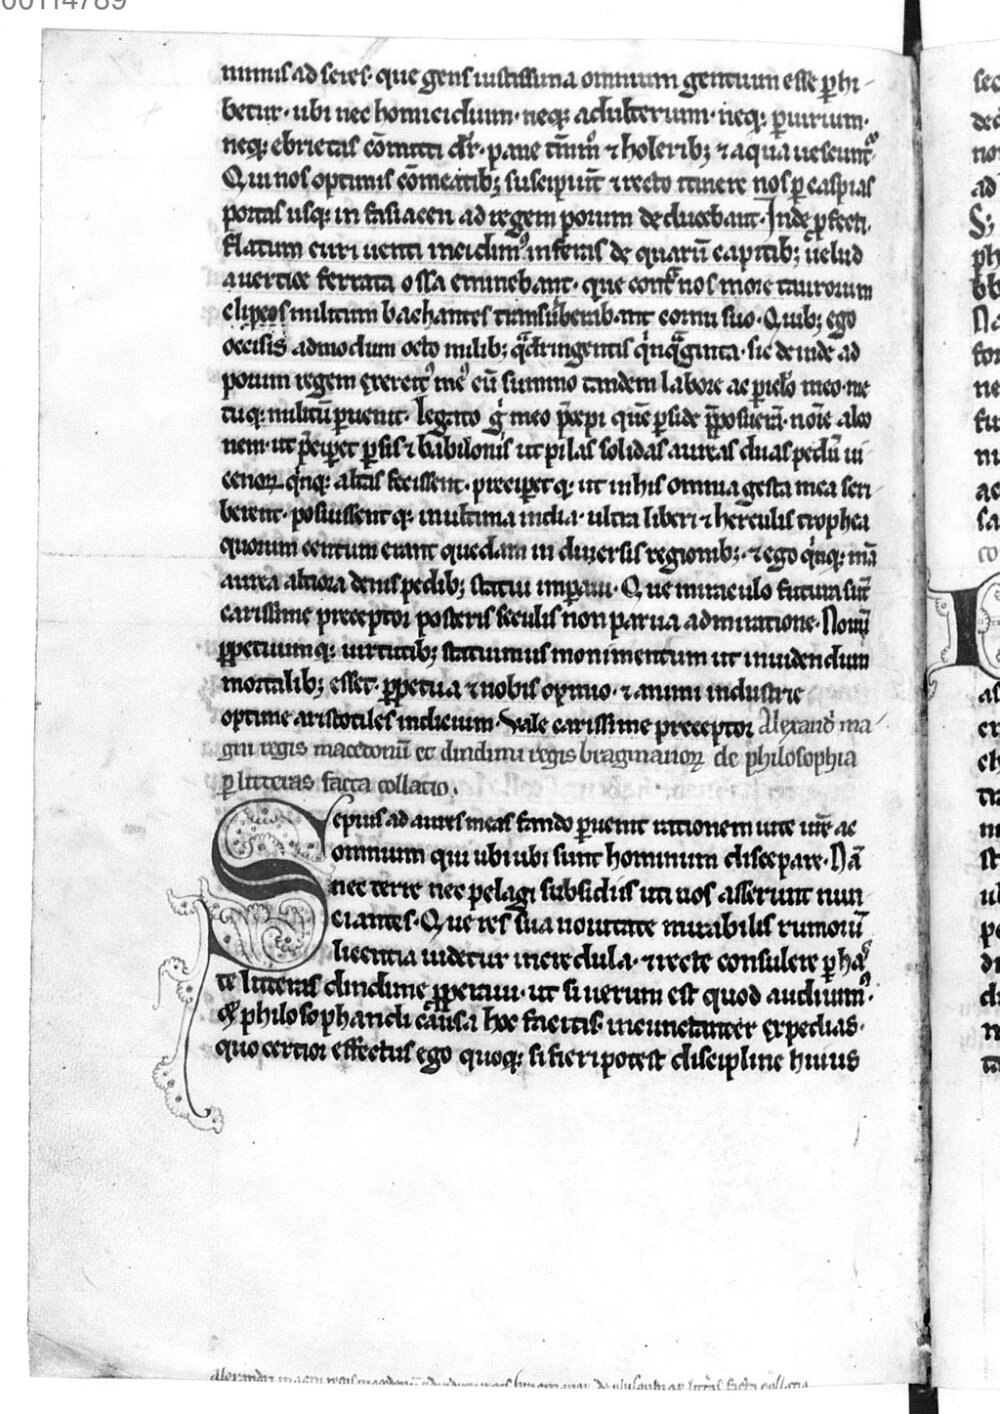 00114789
nimis ad seres. que gens iustissima omnium gentium esse ꝑhi-
betur. ubi nec homicidium. neq; adulterium. neq; ꝑiurium.
neq; ebrietas cōmitti dr̄. pane tm̄m⁹ ⁊ holerib; ⁊ aqua uescunt᷑
Qui nos optimis cōmeatib; suscipiūt ⁊ recto itinere nos ꝑ caspias
portas usq; in fasiacen ad regem porum deducebant. Inde ꝓfecti.
flatum euri uenti incidim⁹ in feras de quarū capitib; uelud
a uertice ferrata ossa eminebant. que contͣ nos more taurorum
clipeos militum bachantes transuͥberabant cornu suo. Quib; ego
occisis admodum octo milib; qͣdringentis qͥnqͣginta. sic deinde ad
porum regem exercit⁹ me⁹ cū summo tandem labore ac ꝑiclo meo. me
tuq; militū ꝑuenit. legato gͦ meo p̄cepi quē ꝑside p̄posuerā. noīe alco
nem. ut p̄ciperet ꝑsis ⁊ babilonis ut pilas solidas aureas duas pedū ui
cenoꝝ qͥnq; altas fecissent. preciperet q; ut in his omnia gesta mea scri
berent. posuissent q; in ultima india. ultra liberi ⁊ herculis trophea
quorum centum erant quedam in diuersis regionib;. ⁊ ego qͥnq; mā
aurea altiora denis pedib; statui imꝑaui. Que miraculo futura sūt
carissime preceptor posteris seculis non parua admiratione. Nouū
ꝑpetuumq; uirtutib; statuimus monimentum ut inuidendum
mortalib; esset. ꝑpetua ⁊ nobis opinio. ⁊ animi industrie
optime aristotiles indicium. Vale carissime preceptor Alexand͛ ma-
gni regis macedonū et dindimi regis bragmanoꝝ de philosophia
ꝑ litteras facta collatio.
Sepius ad aures meas fando ꝑuenit rationem uite ur̄e ac
omnium qui ubiubi sunt hominum discrepare. Nā
nec terre nec pelagi subsidiis uti uos asserunt nun
ciantes. Que res sua nouitate mirabilis rumorū
licentia uidetur incredula. ⁊ recte consulere ꝑ ha⁹
te litteras dindime ꝓperaui. ut si uerum est quod audiuim⁹.
qd̄ philosophandi causa hoc facitis. incunctanter expedias.
quo certior effectus ego quoq; si fieri potest discipline huius
Alexandri magni regis